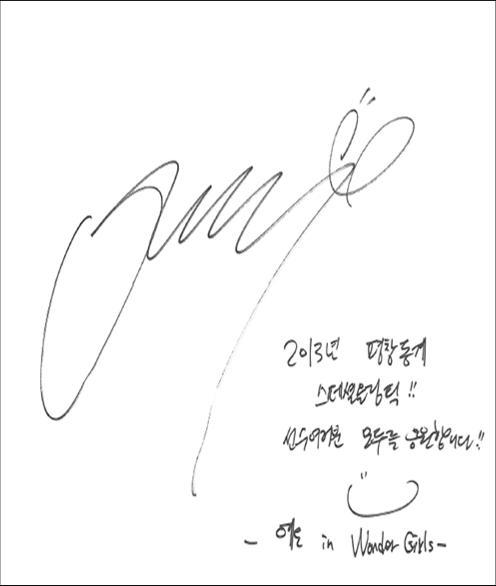 2013년 평창동계
스페셜올림픽!!
선수여러분 모두를 응원합니다!!
- 예은 in Wonder Girls -